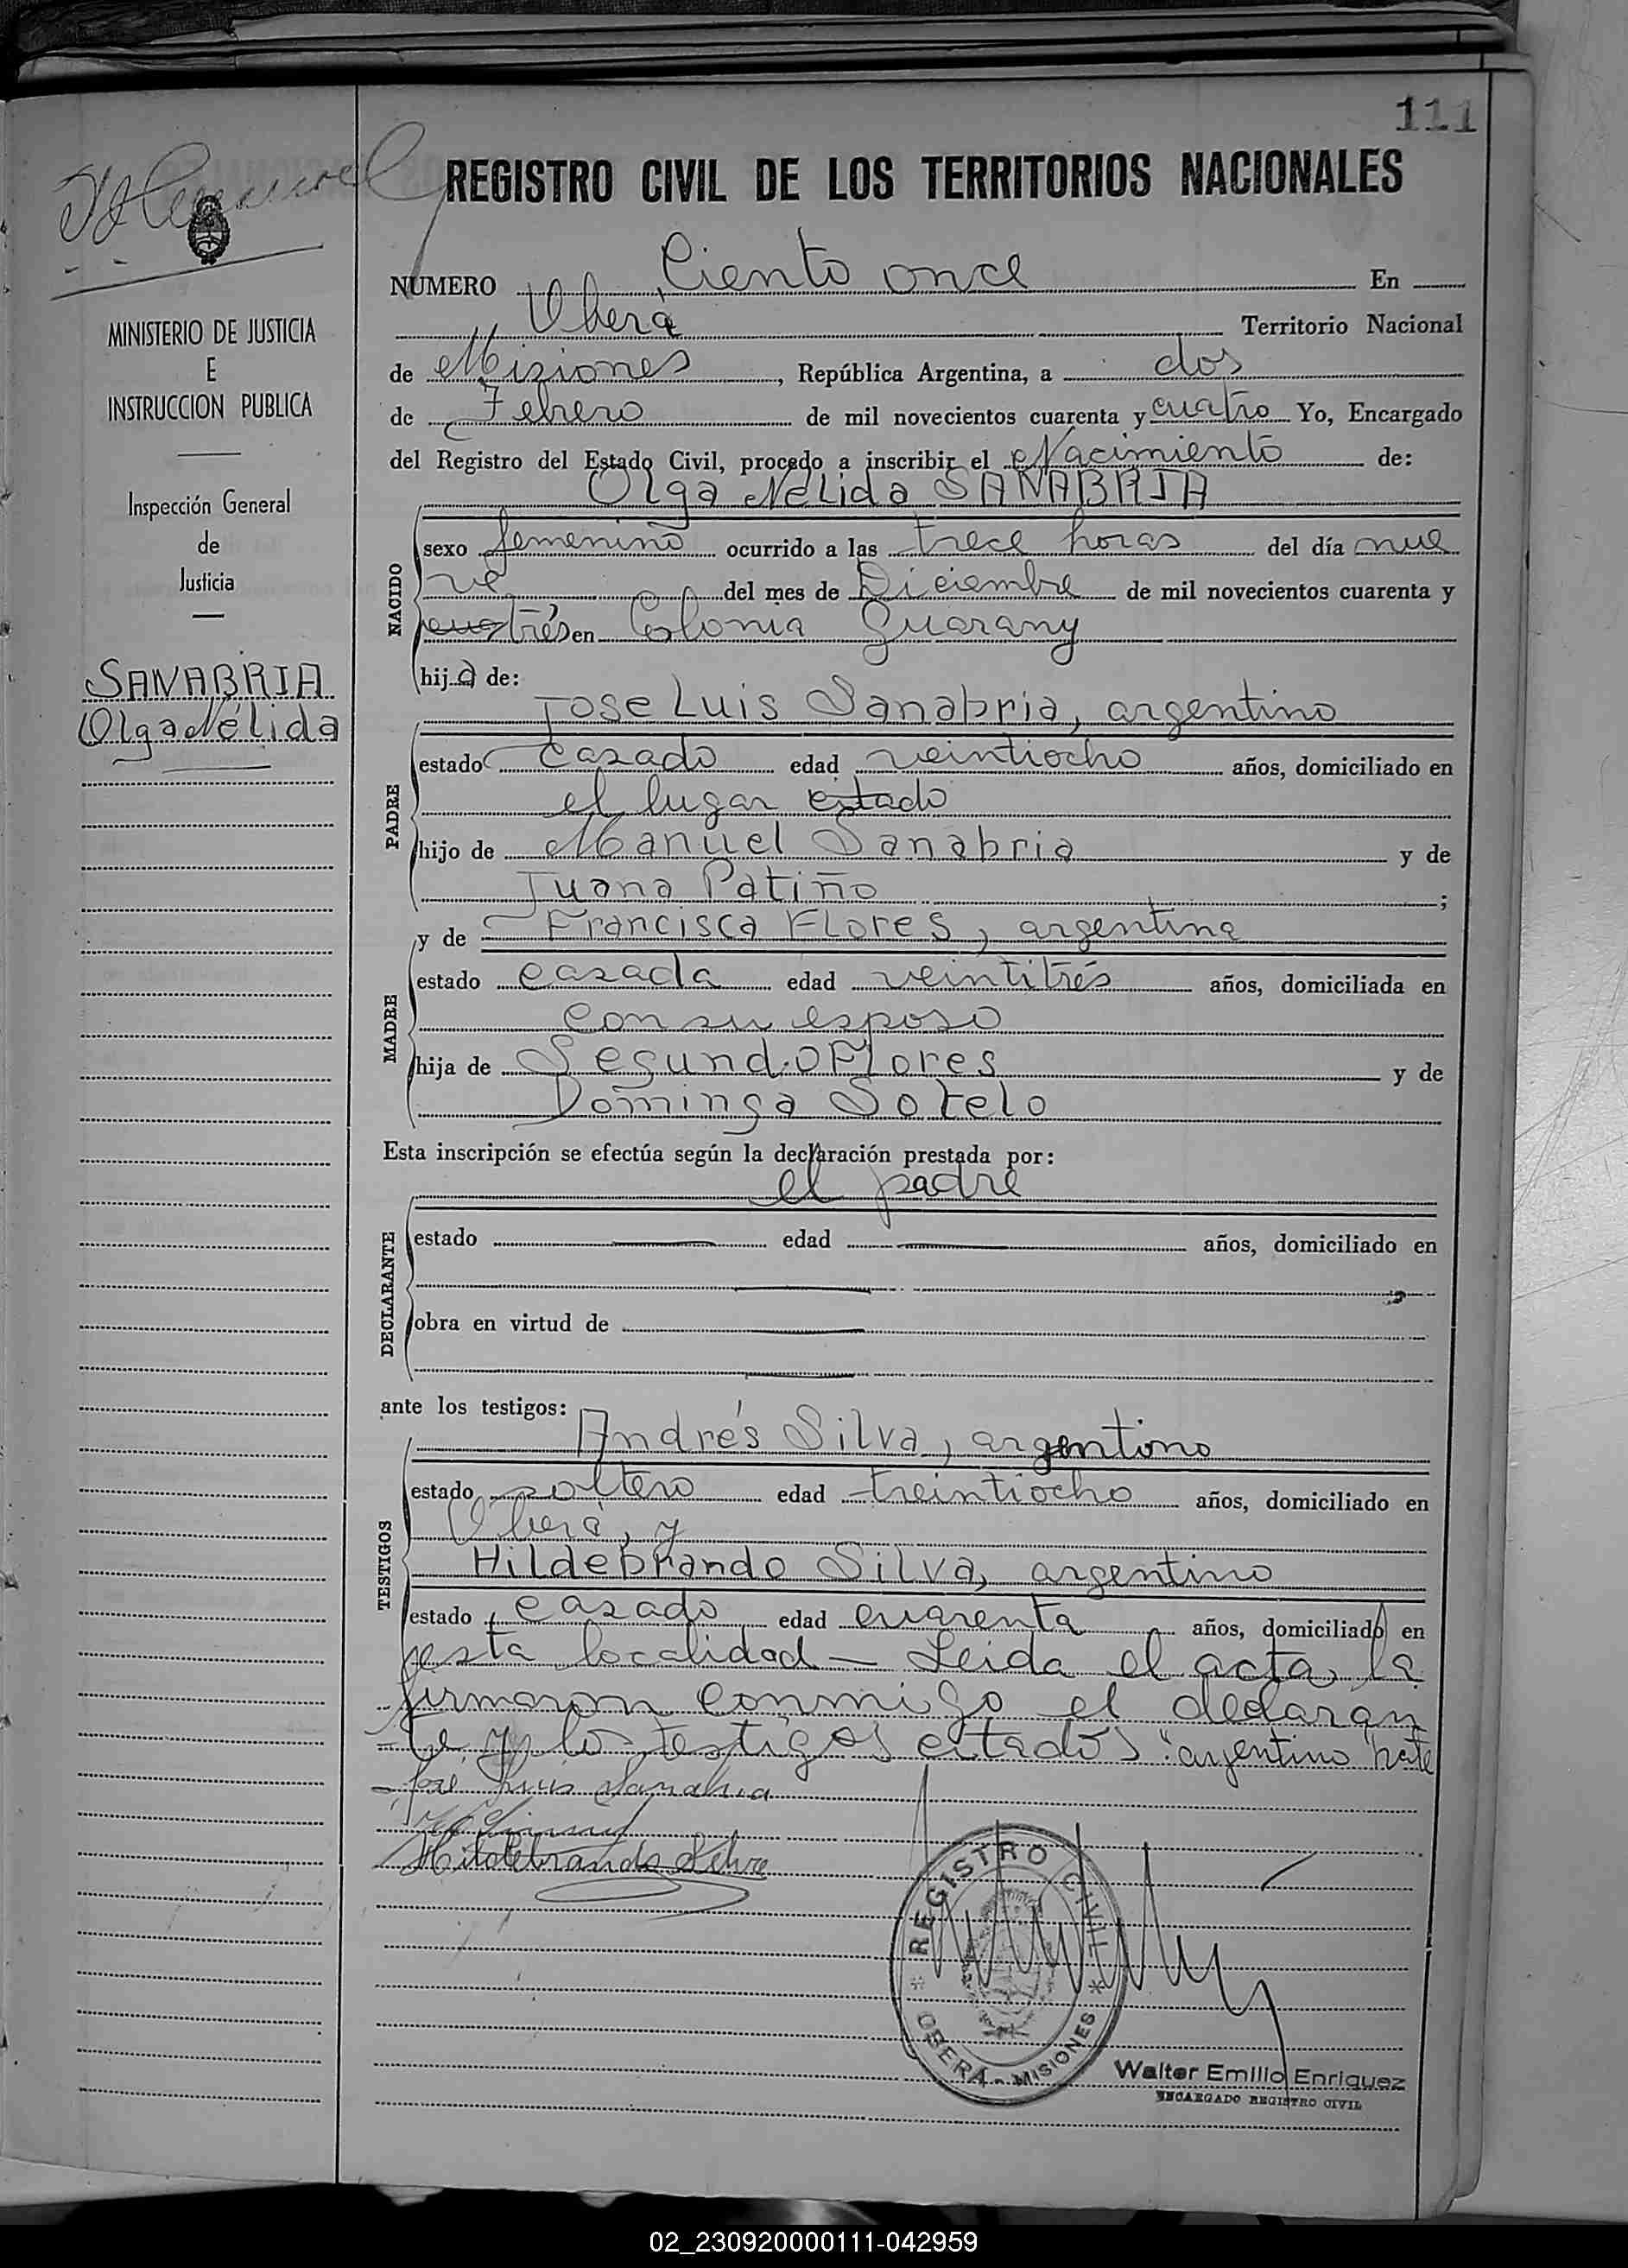 111
REGISTRO CIVIL DE LOS TERRITORIOS NACIONALES
MINISTERIO DE JUSTICIA
E
INSTRUCCION PUBLICA
Inspección General
de
Justicia
SANABRIA
Olga Nélida
NUMERO Ciento once En
Oberá Territorio Nacional
de Misiones, República Argentina, a dos
de Febrero de mil novecientos cuarenta y cuatro Yo, Encargado
del Registro del Estado Civil, procedo a inscribir el Nacimiento de:
Olga Nelida SANABRIA
NACIDO
sexo femenino ocurrido a las trece horas del día nue
ve del mes de Diciembre de mil novecientos cuarenta y
trés en Colonia Guarany
hija de:
PADRE
Jose Luis Sanabria, argentino
estado casado edad veintiocho años, domiciliado en
el lugar estado
hijo de Manuel Sanabria y de
Juana Patiño ;
MADRE
y de Francisca Flores, argentina
estado casada edad veintitrés años, domiciliada en
con su esposo
hija de Segundo Flores y de
Dominga Sotelo
Esta inscripción se efectúa según la declaración prestada por:
el padre
DECLARANTE
estado edad años, domiciliado en
obra en virtud de
ante los testigos:
TESTIGOS
Andrés Silva, argentino
estado soltero edad treintiocho años, domiciliado en
Oberá, y
Hildebrando Silva, argentino
estado casado edad cuarenta años, domiciliado en
esta localidad — Leida el acta, la
firmaron conmigo el declaran
te y los testigos citados "argentino"
José Luis Sanabria
Hildebrando Silva
REGISTRO CIVIL
OBERÁ - MISIONES
Walter Emilio Enriquez
ENCARGADO REGISTRO CIVIL
02_230920000111-042959